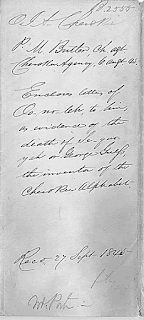 P. M. Butler Ch. agt
Cherokee Agency, 6 augt 45
Encloses letter of
Oo. no. leh, to him,
as evidence of the
death of Se-quo,
yah or George Guess,
the inventor of the
Cherokee Alphabet.
Recd 27 Sept. 1845